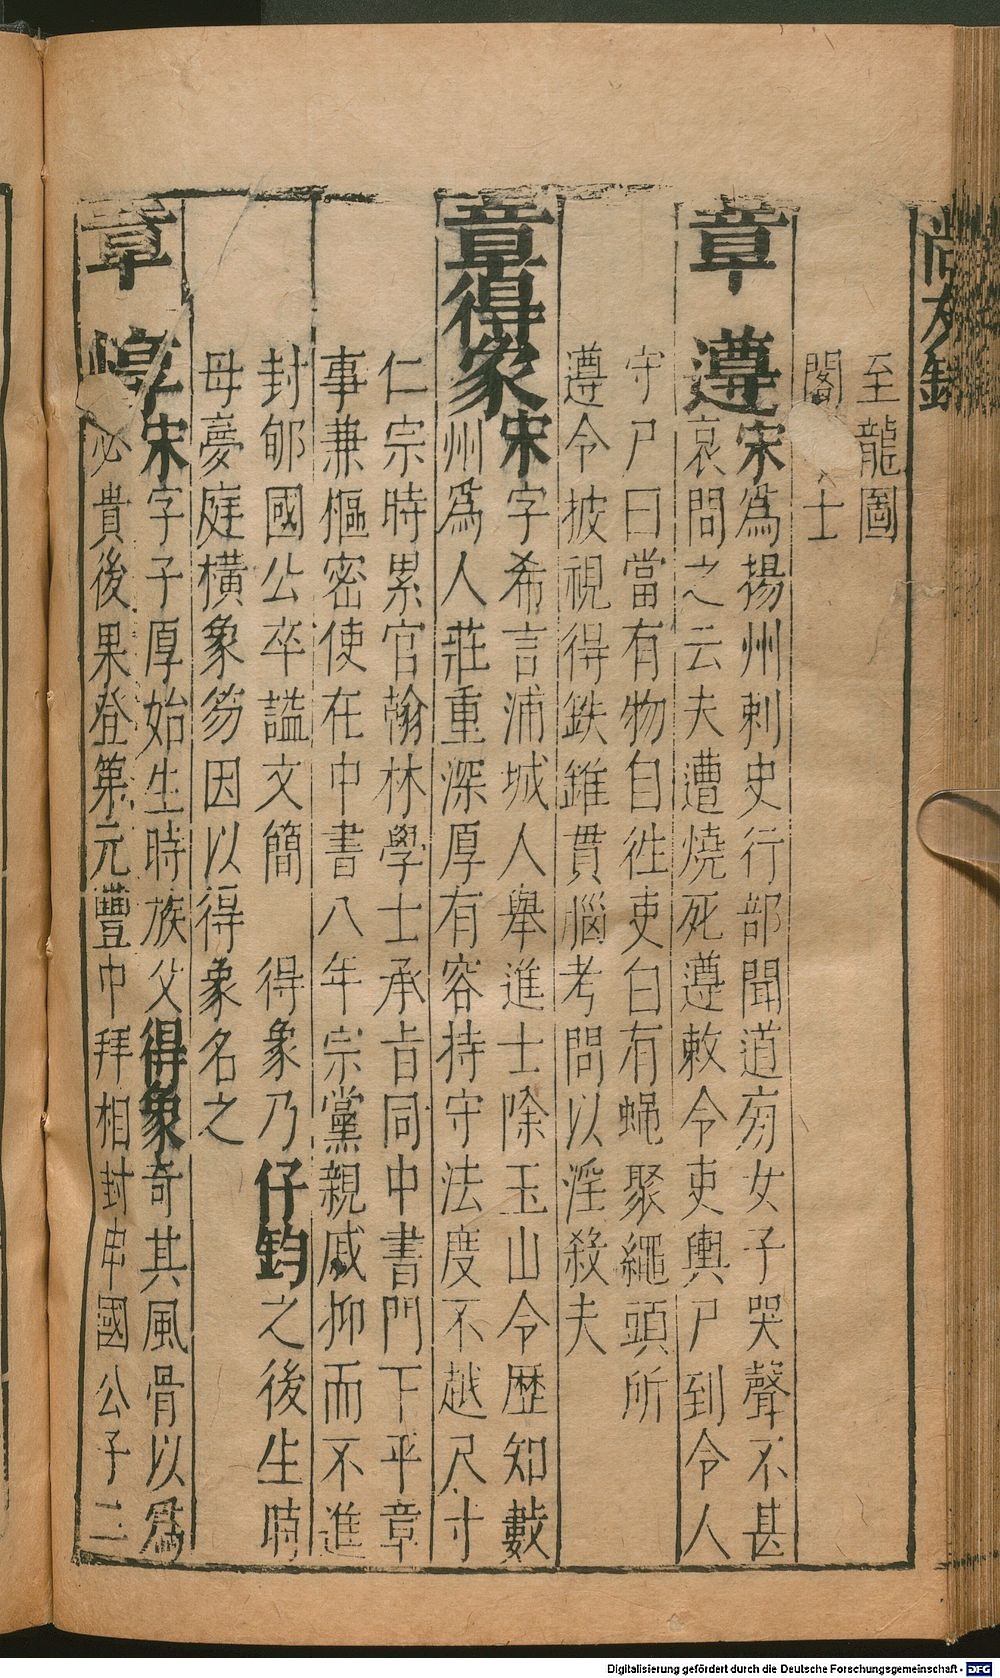 尚友錄
至龍圖
閣 士
章 遵宋爲揚州刺史行部聞道旁女子哭聲不甚
哀問之云夫遭燒死遵敕令吏輿尸到令人
守尸曰當有物自徃吏白有蝇聚繩頭所
遵令披視得鉄錐貫腦考問以淫殺夫
章得象宋字希言浦城人舉進士除玉山令歴知數
州爲人莊重深厚有容持守法度不越尺寸
仁宗時累官翰林學士承旨同中書門下平章
事兼樞密使在中書八年宗黨親戚抑而不進
封郇國公卒謚文簡 得象乃仔鈞之後生時
母夢庭橫象笏因以得象名之
章 惇宋字子厚始生時族父得象奇其風骨以爲
必貴後果登第元豐中拜相封申國公子二
Digitalisierung gefördert durch die Deutsche Forschungsgemeinschaft - DFG